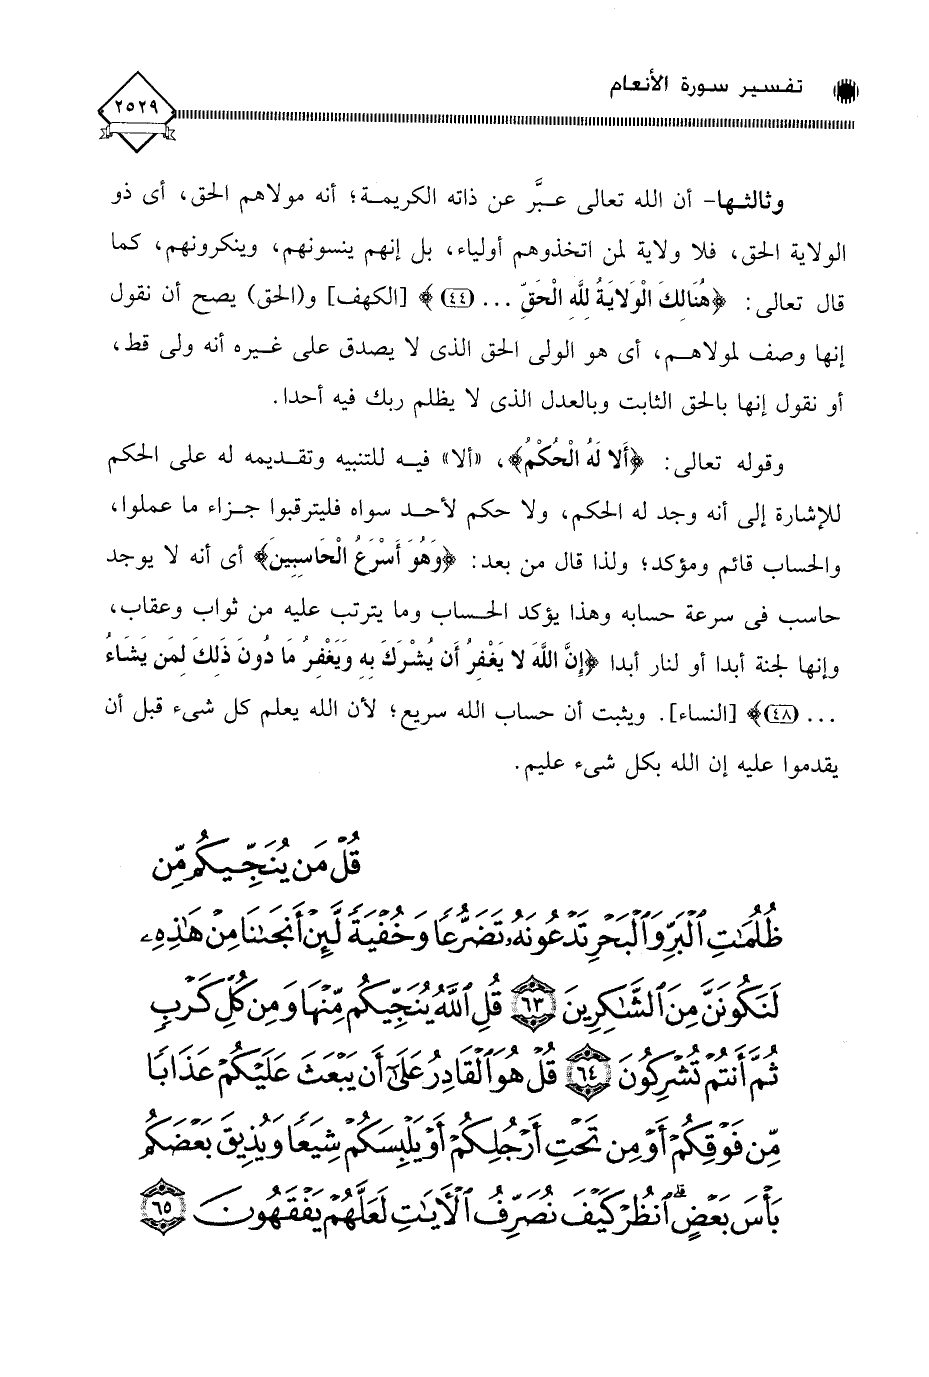 تفسير سورة الأنعام
٢٥٢٩
وثالثها- أن الله تعالى عبَّر عن ذاته الكريمة؛ أنه مولاهم الحق، أى ذو
الولاية الحق، فلا ولاية لمن اتخذوهم أولياء، بل إنهم ينسونهم، وينكرونهم، كما
قال تعالى: ﴿هُنَالِكَ الْوَلايَةُ لِلَّهِ الْحَقِّ ... (٤٤)﴾ [الكهف] و(الحق) يصح أن نقول
إنها وصف لمولاهم، أى هو الولى الحق الذى لا يصدق على غيره أنه ولى قط،
أو نقول إنها بالحق الثابت وبالعدل الذى لا يظلم ربك فيه أحدا.
وقوله تعالى: ﴿أَلا لَهُ الْحُكْمُ﴾، «ألا» فيه للتنبيه وتقديمه له على الحكم
للإشارة إلى أنه وجد له الحكم، ولا حكم لأحد سواه فليترقبوا جزاء ما عملوا،
والحساب قائم ومؤكد؛ ولذا قال من بعد: ﴿وَهُوَ أَسْرَعُ الْحَاسِبِينَ﴾ أى أنه لا يوجد
حاسب فى سرعة حسابه وهذا يؤكد الحساب وما يترتب عليه من ثواب وعقاب،
وإنها لجنة أبدا أو لنار أبدا ﴿إِنَّ اللَّهَ لا يَغْفِرُ أَن يُشْرَكَ بِهِ وَيَغْفِرُ مَا دُونَ ذَلِكَ لِمَن يَشَاءُ
... (٤٨)﴾ [النساء]. ويثبت أن حساب الله سريع؛ لأن الله يعلم كل شىء قبل أن
يقدموا عليه إن الله بكل شىء عليم.
قُلْ مَن يُنَجِّيكُم مِّن
ظُلُمَٰتِ ٱلْبَرِّ وَٱلْبَحْرِ تَدْعُونَهُۥ تَضَرُّعًا وَخُفْيَةً لَّئِنْ أَنجَىٰنَا مِنْ هَٰذِهِۦ
لَنَكُونَنَّ مِنَ ٱلشَّٰكِرِينَ ٦٣ قُلِ ٱللَّهُ يُنَجِّيكُم مِّنْهَا وَمِن كُلِّ كَرْبٍ
ثُمَّ أَنتُمْ تُشْرِكُونَ ٦٤ قُلْ هُوَ ٱلْقَادِرُ عَلَىٰٓ أَن يَبْعَثَ عَلَيْكُمْ عَذَابًا
مِّن فَوْقِكُمْ أَوْ مِن تَحْتِ أَرْجُلِكُمْ أَوْ يَلْبِسَكُمْ شِيَعًا وَيُذِيقَ بَعْضَكُم
بَأْسَ بَعْضٍ ۗ ٱنظُرْ كَيْفَ نُصَرِّفُ ٱلْأَيَٰتِ لَعَلَّهُمْ يَفْقَهُونَ ٦٥